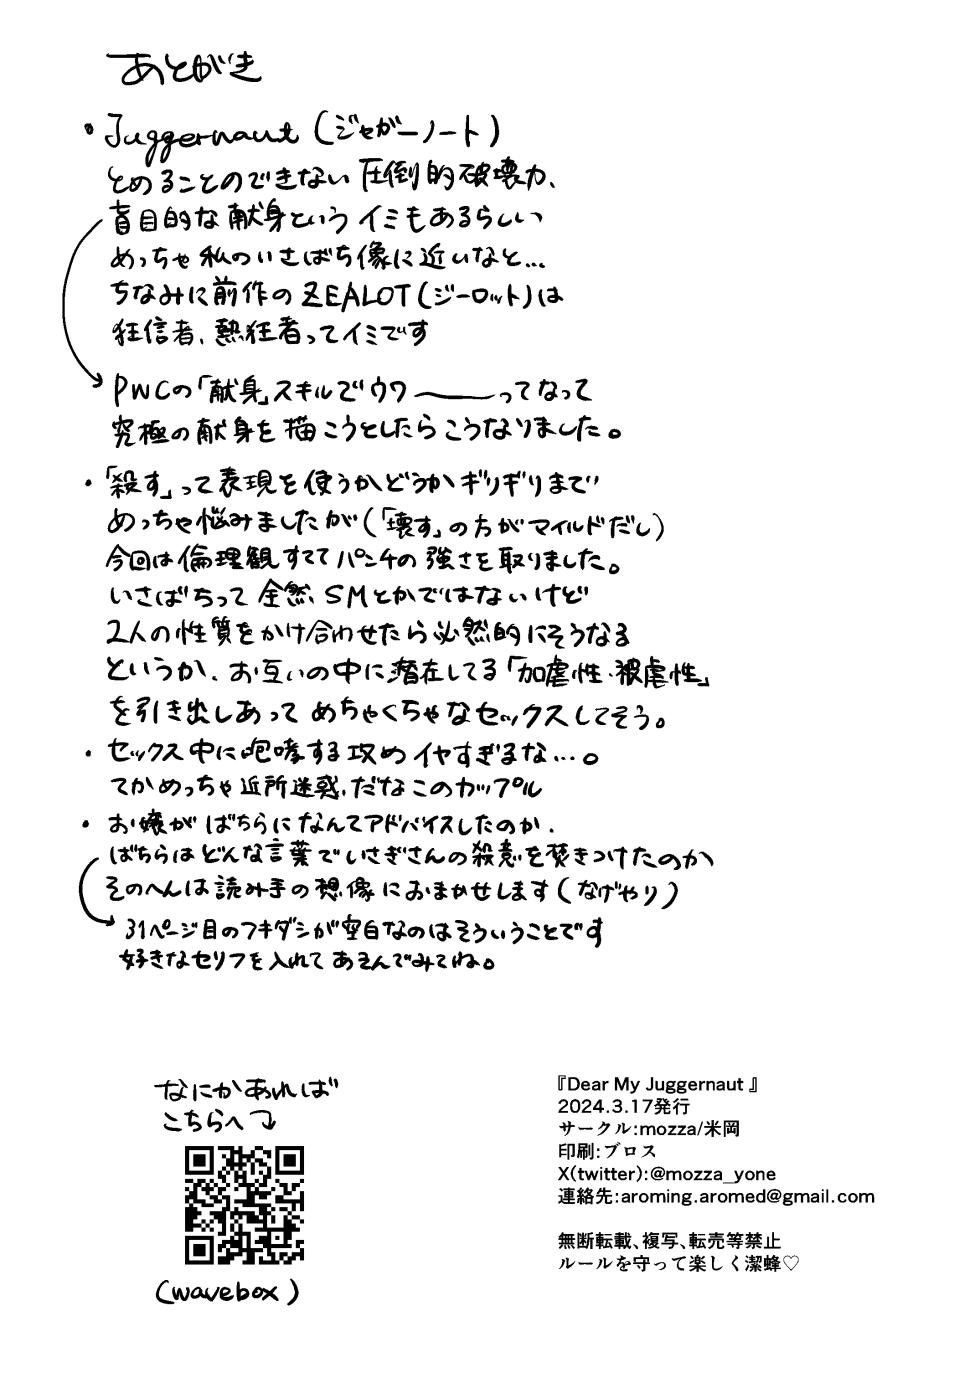 あとがき
・Juggernaut(ジャガーノート)
とめることのできない圧倒的破壊力、
盲目的な献身というイミもあるらしい
めっちゃ私のいさばち像に近いなと…
ちなみに前作のZEALOT(ジーロット)は
狂信者、熱狂者ってイミです
PWCの「献身」スキルでウワーーってなって
究極の献身を描こうとしたらこうなりました。
・「殺す」って表現を使うかどうかギリギリまで
めっちゃ悩みましたが(「壊す」の方がマイルドだし)
今回は倫理観すててパンチの強さを取りました。
いさばちって全然、SMとかではないけど
2人の性質をかけ合わせたら必然的にそうなる
というか、お互いの中に潜在してる「加虐性・被虐性」
を引き出しあってめちゃくちゃなセックスしてそう。
・セックス中に咆哮する攻めイヤすぎるな…。
てかめっちゃ近所迷惑、だなこのカップル
・お嬢がばちらになんてアドバイスしたのか、
ばちらはどんな言葉でいさぎさんの殺意を焚きつけたのか
そのへんは読み手の想像におまかせします(なげやり)
31ページ目のフキダシが空白なのはそういうことです
好きなセリフを入れてあそんでみてね。
なにかあれば
こちらへ
(wavebox)
『Dear My Juggernaut 』
2024.3.17発行
サークル:mozza/米岡
印刷:ブロス
X(twitter):@mozza_yone
連絡先:aroming.aromed@gmail.com
無断転載、複写、転売等禁止
ルールを守って楽しく潔蜂♡